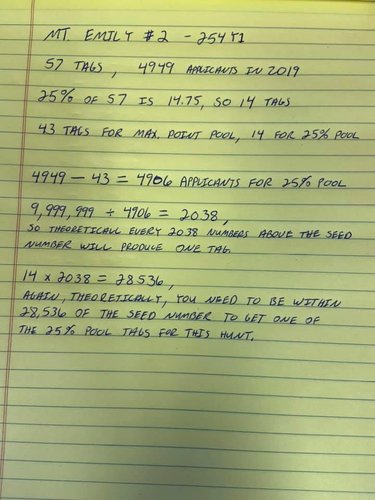 MT. EMILY #2 - 254Y1
57 TAGS, 4949 APPLICANTS IN 2019
25% OF 57 IS 14.75, SO 14 TAGS
43 TAGS FOR MAX. POINT POOL, 14 FOR 25% POOL
4949 - 43 = 4906 APPLICANTS FOR 25% POOL
9,999,999 ÷ 4906 = 2038,
SO THEORETICALL EVERY 2038 NUMBERS ABOVE THE SEED
NUMBER WILL PRODUCE ONE TAG.
14 x 2038 = 28536,
AGAIN, THEORETICALLY, YOU NEED TO BE WITHIN
28,536 OF THE SEED NUMBER TO GET ONE OF
THE 25% POOL TAGS FOR THIS HUNT.